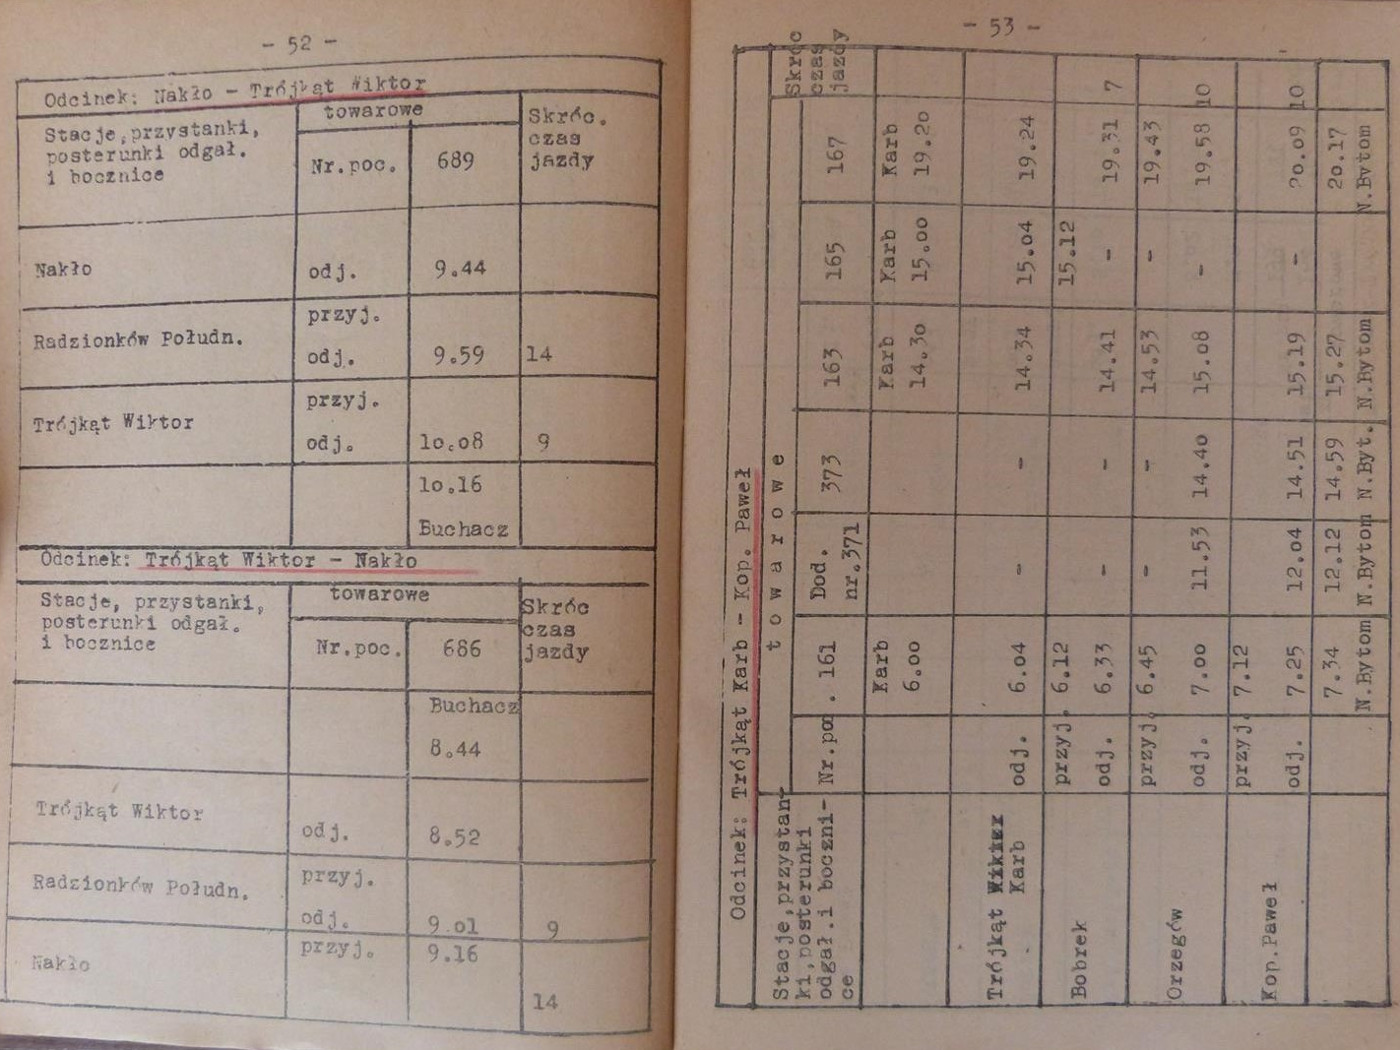 - 52 -
Odcinek: Nakło - Trójkąt Wiktor
Stacje,przystanki,
posterunki odgał.
i bocznice
towarowe
Nr.poc. 689
Skróc.
czas
jazdy
Nakło odj. 9.44
Radzionków Połudn. przyj.
odj. 9.59 14
Trójkąt Wiktor przyj.
odj. 10.08 9
10.16
Buchacz
Odcinek: Trójkąt Wiktor - Nakło
Stacje, przystanki,
posterunki odgał.
i bocznice
towarowe
Nr.poc. 686
Skróc
czas
jazdy
Buchacz
8.44
Trójkąt Wiktor odj. 8.52
Radzionków Połudn. przyj.
odj. 9.01 9
Nakło przyj. 9.16
14
- 53 -
Odcinek: Trójkąt Karb - Kop. Paweł
Stacje,przystan-
ki,posterunki
odgał.i boczni-
ce
t o w a r o w e
Nr.poc. 161 Dod. nr.371 373 163 165 167
Skróc
czas
jazdy
Karb Karb Karb Karb
6.00 14.30 15.00 19.20
Trójkąt
Karb odj. 6.04 - - 14.34 15.04 19.24
Bobrek przyj. 6.12 15.12
odj. 6.33 - - 14.41 - 19.31 7
przyj. 6.45 - - 14.53 - 19.43
Orzegów odj. 7.00 11.53 14.40 15.08 - 19.58 10
przyj. 7.12
Kop.Paweł odj. 7.25 12.04 14.51 15.19 - 20.09 10
7.34 12.12 14.59 15.27 20.17
N.Bytom N.Bytom N.Byt. N.Bytom N.Bytom